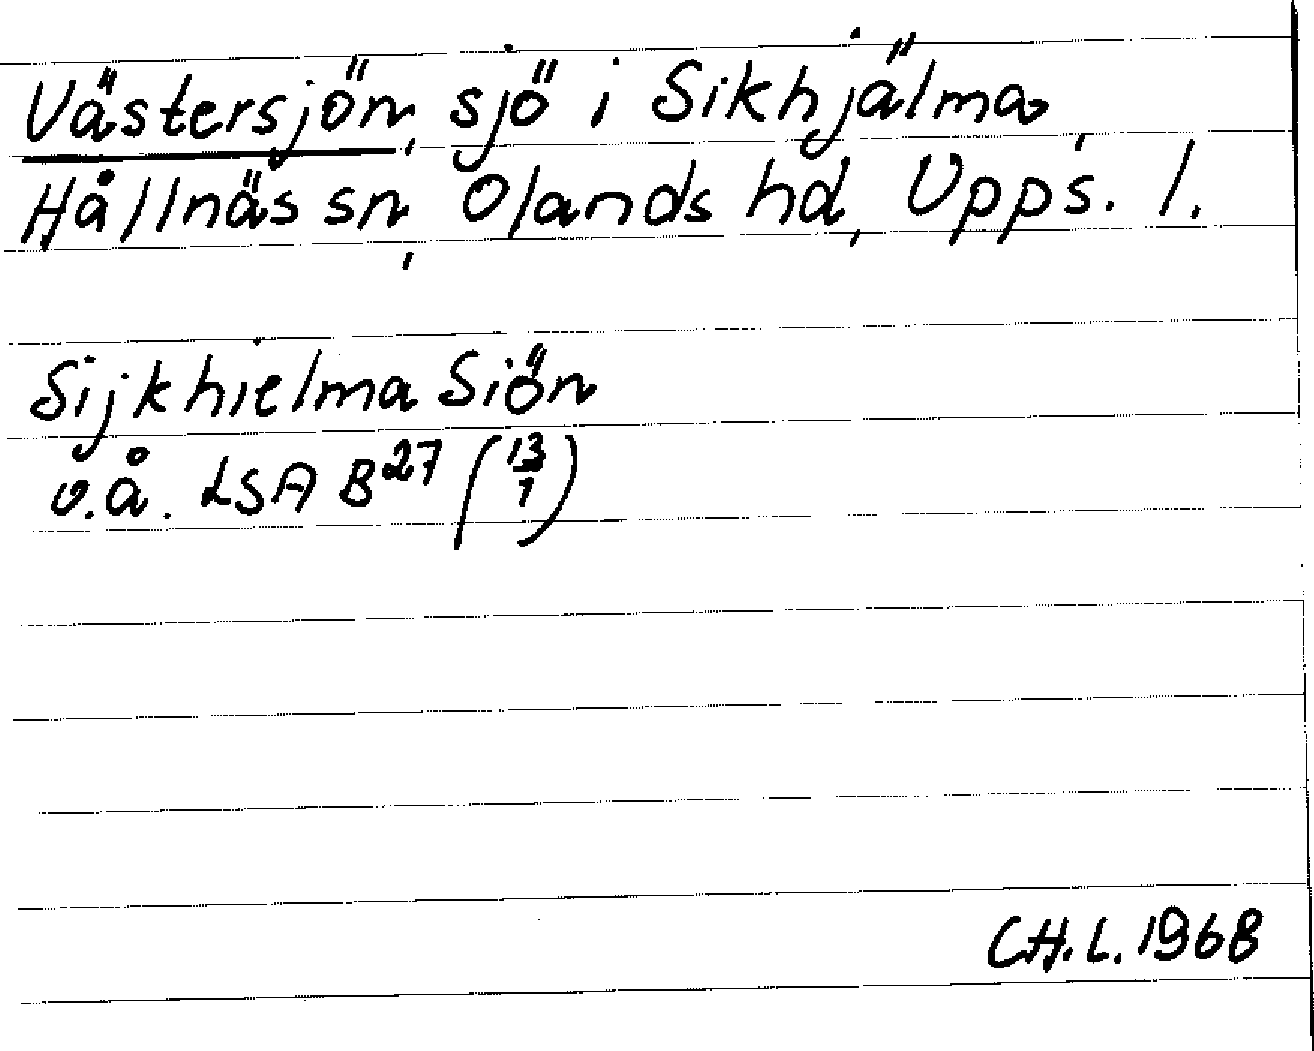 Västersjön, sjö i Sikhjälma,
Hållnäs sn, Olands hd, Upps. l.
Sijkhielma Siön
o.å. LSA B27 (13/1)
CH.L. 1968